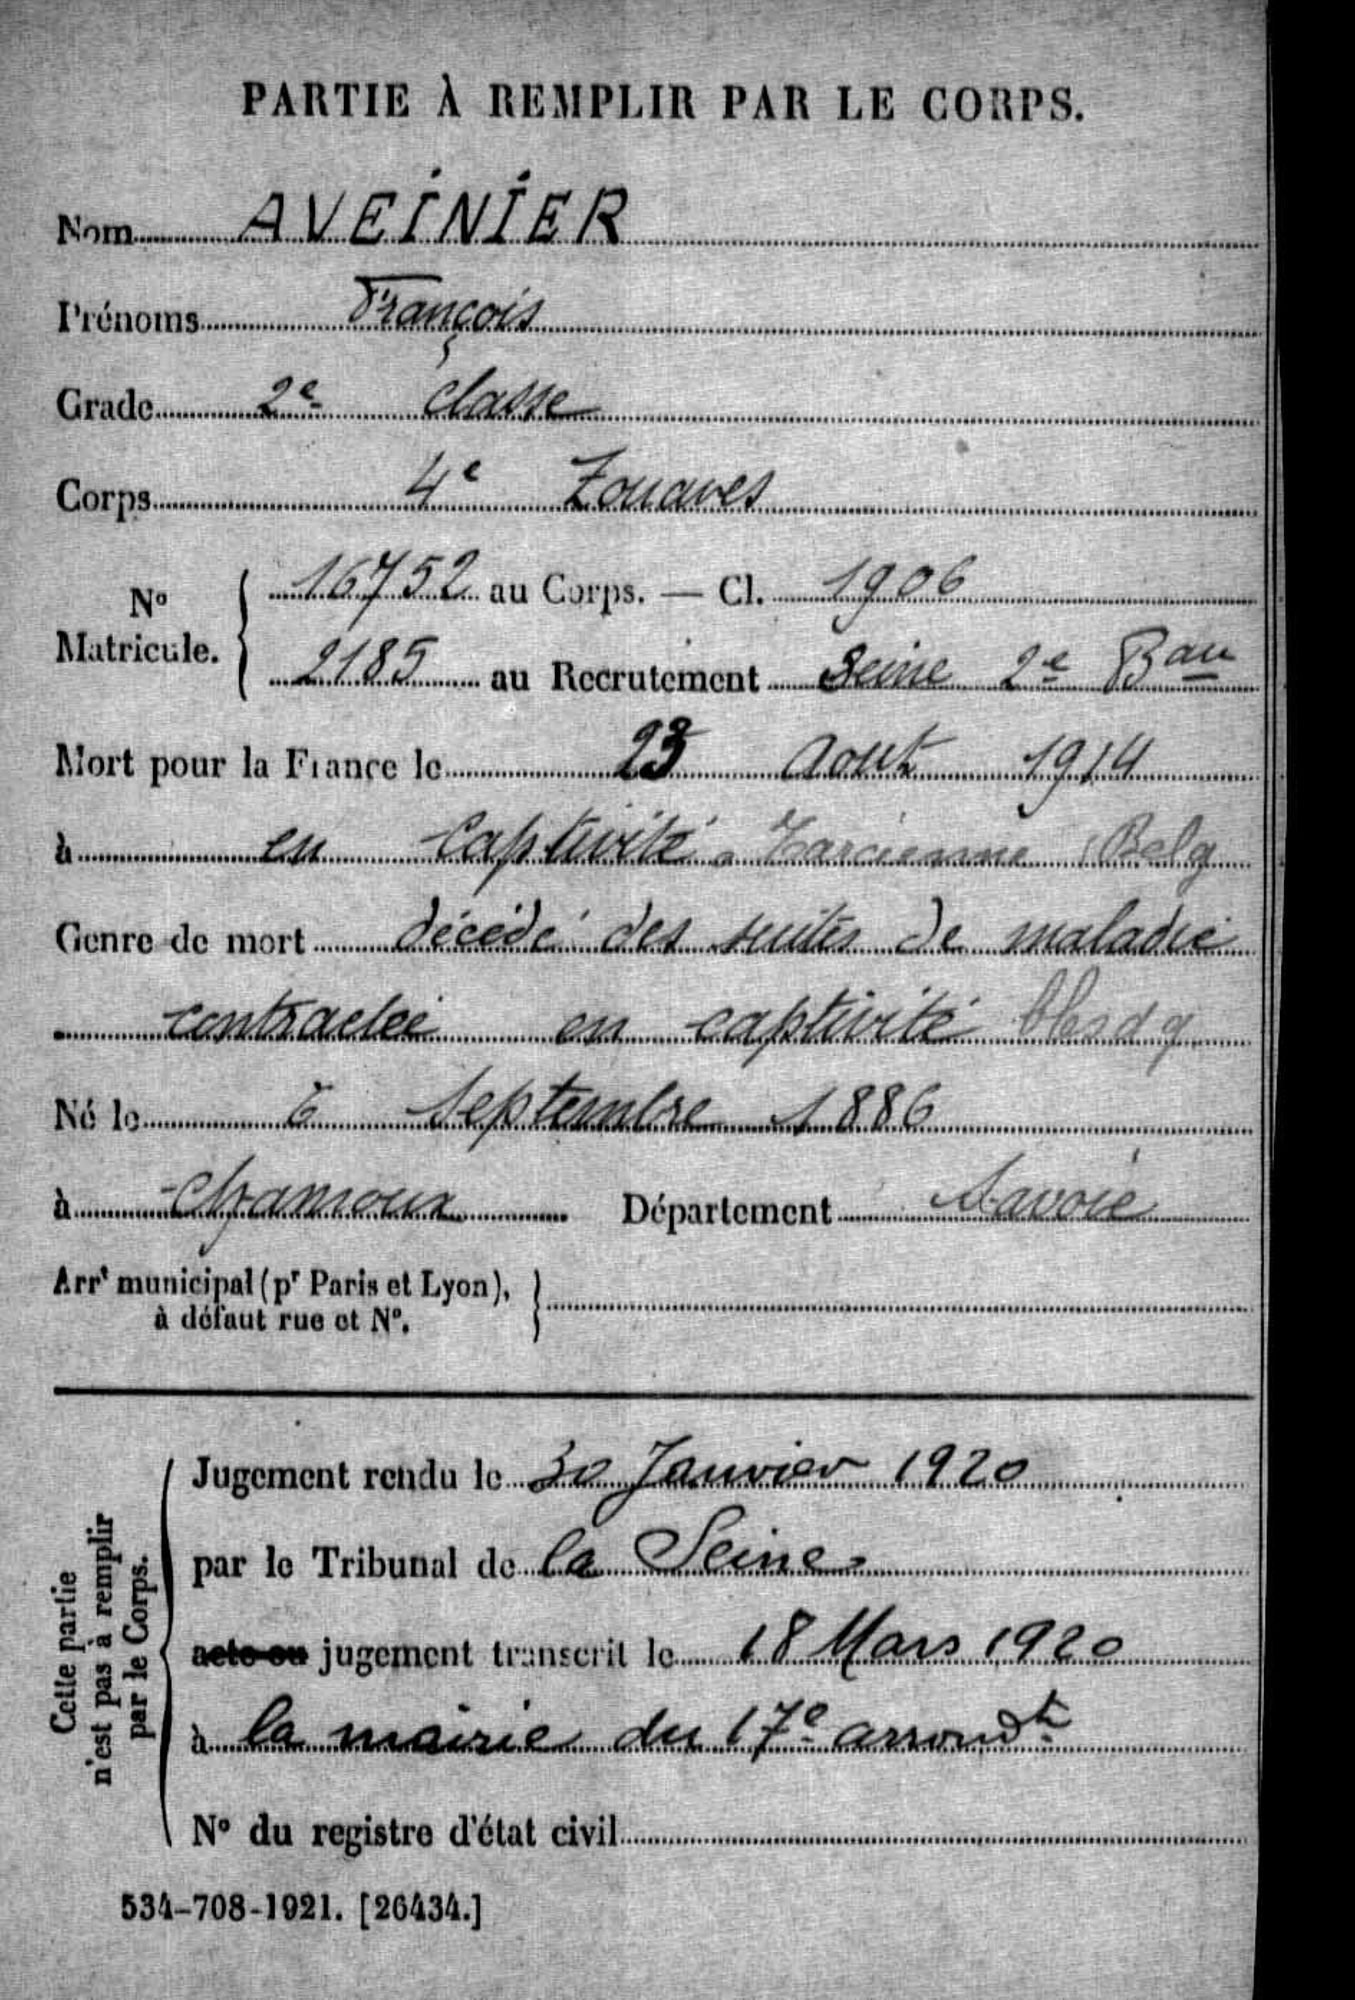 PARTIE À REMPLIR PAR LE CORPS.
Nom AVEINIER
Prénoms François
Grade 2e classe
Corps 4e Zouaves
No Matricule. { 16752 au Corps. — Cl. 1906
2185 au Recrutement Seine 2e Bau
Mort pour la France le 23 Aout 1914
à en Captivité. Tarcienne (Belg
Genre de mort décédé des suites de maladie
contractée en captivité bles d g
Né le 6 Septembre 1886
à Chamoux Département Savoie
Arrt municipal (pr Paris et Lyon),
à défaut rue et No.
Cette partie n'est pas à remplir par le Corps.
Jugement rendu le 30 Janvier 1920
par le Tribunal de la Seine
acte ou jugement transcrit le 18 Mars 1920
à la mairie du 17e arrondt
No du registre d'état civil
534-708-1921. [26434.]